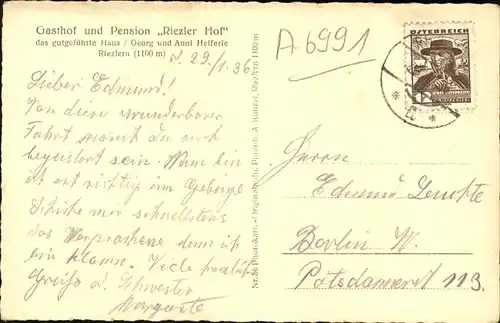 Gasthof und Pension „Riezler Hof"
das gutgeführte Haus / Georg und Anni Hefferle
Riezlern (1100 m)
d. 29./1.36
Lieber Edmund!
Von dieser wunderbaren
Fahrt wirst du auch
begeistert sein. Nun bin
ich erst richtig im Gebirge
Schicke mir schnellstens
das Versprochene denn ich
bin klamm. Viele
Grüße d. Schwester
Margarete
Nr. 56 Photokart.-Original
A Künzel, Riezlern 1100 m
A6991
ÖSTERREICH
Herrn
Edmund
Berlin W.
Potsdamerst 113.